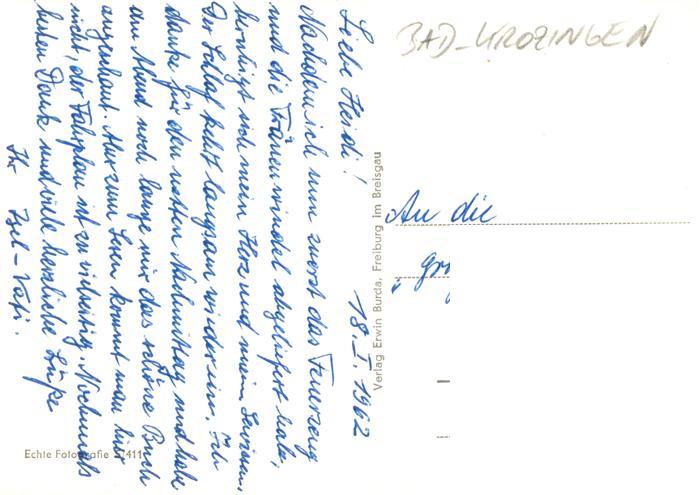 Liebe Heidi!
18. I. 1962
Nachdem ich nun zuerst das Feuerzeug
und die Tränenwindel abgeliefert habe,
beruhigt sich mein Herz und mein Gewissen.
Der Schlaf kehrt langsam wieder ein. Ich
danke für den netten Nachmittag und habe
am Abend noch lange mir das schöne Buch
angeschaut. Aber zum Lesen kommt man hier
nicht, der Fahrplan ist zu vielseitig. Nochmals
lieben Dank und viele herzliche Grüße
Ihr
BAD-KROZINGEN
An die
Verlag Erwin Burda, Freiburg im Breisgau
Echte Fotografie 27411